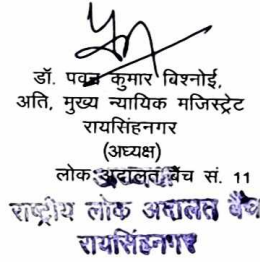 डॉ. पवन कुमार बिश्नोई,
अति, मुख्य न्यायिक मजिस्ट्रेट
रायसिंहनगर
(अध्यक्ष)
लोक अदालत बैंच सं. 11
राष्ट्रीय लोक अदालत बैंच
रायसिंहनगर